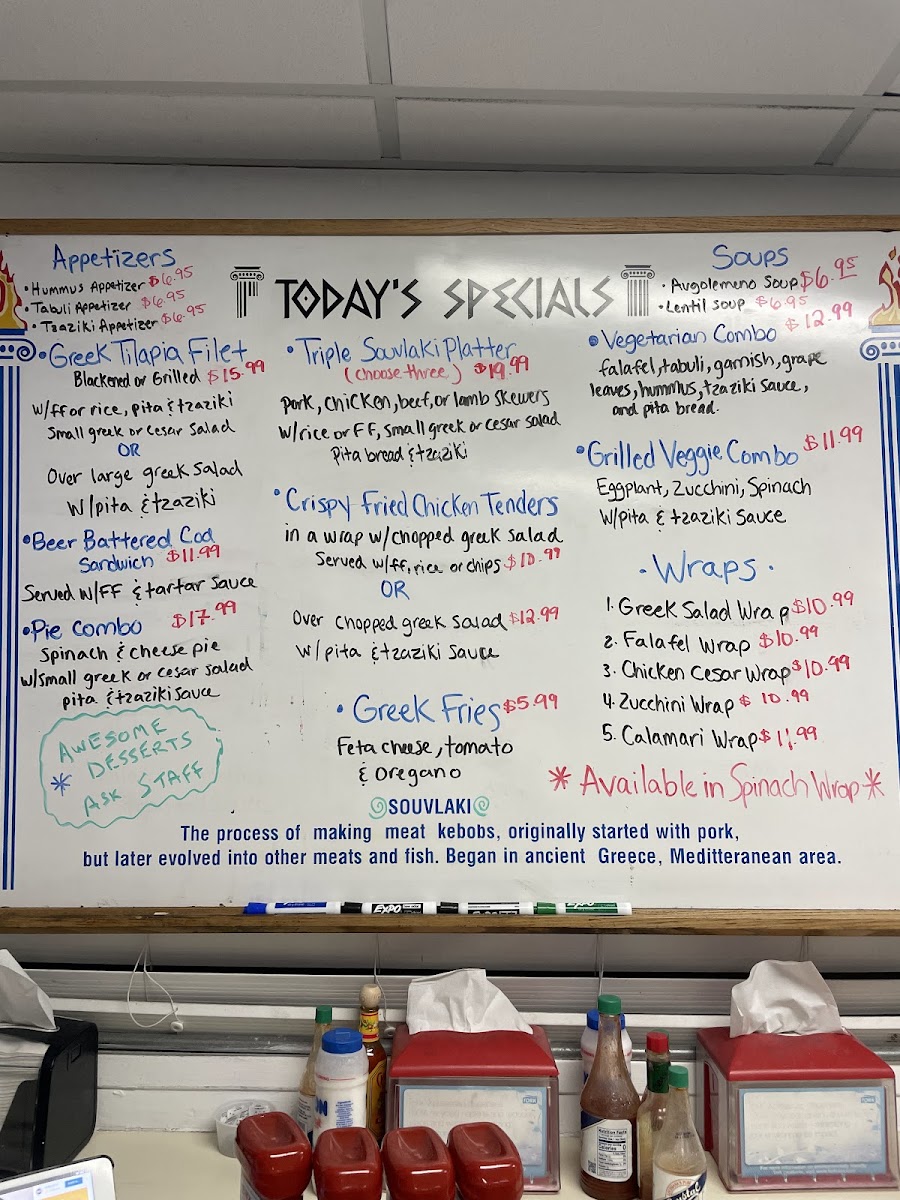 Appetizers
• Hummus Appetizer $6.95
• Tabuli Appetizer $6.95
• Tzaziki Appetizer $6.95
• Greek Tilapia Filet
Blackened or Grilled $15.99
w/ff or rice, pita & tzaziki
Small greek or cesar salad
OR
Over large greek salad
w/pita & tzaziki
• Beer Battered Cod
Sandwich $11.99
Served w/FF & tartar sauce
• Pie Combo $17.99
Spinach & cheese pie
w/small greek or cesar salad
pita & tzaziki sauce
AWESOME
DESSERTS
* ASK STAFF
TODAY'S SPECIALS
• Triple Souvlaki Platter
(choose three) $19.99
Pork, chicken, beef, or lamb skewers
w/rice or FF, small greek or cesar salad
Pita bread & tzaziki
• Crispy Fried Chicken Tenders
in a wrap w/chopped greek salad
Served w/ff, rice or chips $10.99
OR
Over chopped greek salad $12.99
w/pita & tzaziki sauce
• Greek Fries $5.99
Feta cheese, tomato
& oregano
Soups
• Avgolemeno Soup $6.95
• Lentil Soup $6.95
• Vegetarian Combo $12.99
falafel, tabuli, garnish, grape
leaves, hummus, tzaziki sauce,
and pita bread.
• Grilled Veggie Combo $11.99
Eggplant, Zucchini, Spinach
w/pita & tzaziki sauce
· Wraps ·
1. Greek Salad Wrap $10.99
2. Falafel Wrap $10.99
3. Chicken Cesar Wrap $10.99
4. Zucchini Wrap $10.99
5. Calamari Wrap $11.99
* Available in Spinach Wrap *
SOUVLAKI
The process of making meat kebobs, originally started with pork,
but later evolved into other meats and fish. Began in ancient Greece, Meditteranean area.
EXPO
Nutrition Facts
Calories 0